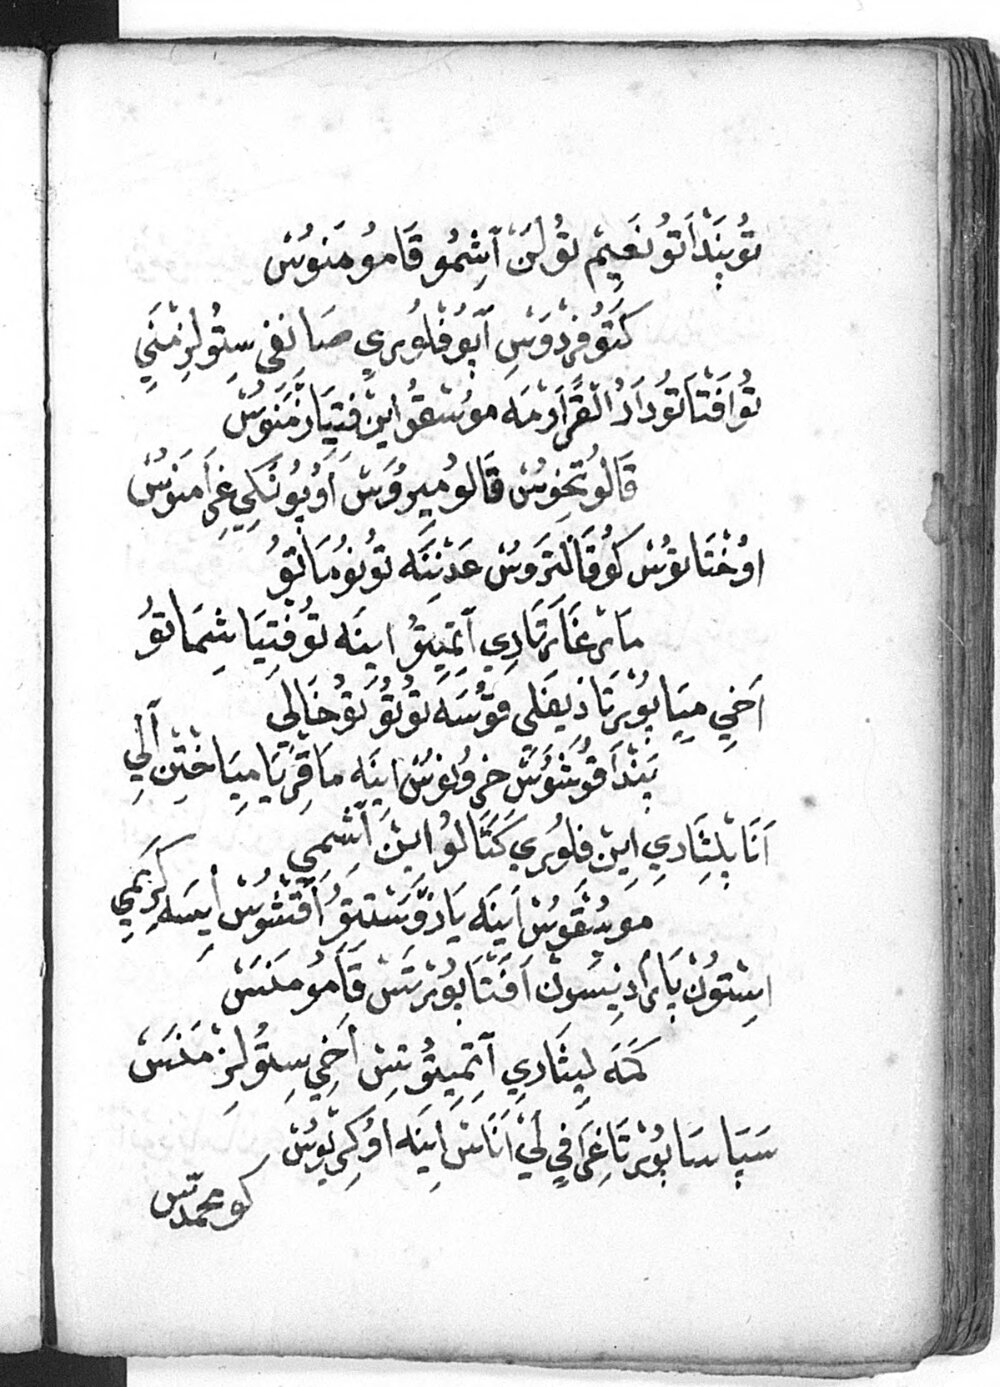 تُوپَنْدَاتُو نَعِيمْ تُولَنْ آشِمُو قَامُومَنوُسْ
كَتُوفِرْدَوْسِ آپُوفْلُورِي صَانفى سِتُولِزْمَنِي
تُواَفْتَاتُو دَارُ الْقَرَارْمَه موُسْقُو اينْ فِتِيَازْمَنوُسْ
قَالُوتِخوُسْ قَالُومِيرُوسْ اَوْپُونَكِي غِرَامَنوُسْ
اوُخْتَاتوُسْ كوُقَالِتَروُسْ عَدْنِنَه تُونوُمَاتوُ
مَارغَارِتَارِي آتِمِيتُو اينَه تُوفِتِيَاشِمَاتوُ
اَخِي مِيَاپُورْتَا ذِيفَلى قوُسَه تُوتُو تُوخَالِي
پَنْدَاقُوشوُسْ خروُنوُسْ اينَه مَاقْرِيَا مِيَاخْتِنْ آلِي
اَنَاپِلِثَارِي اِينْ فِلُورِي كَتَالُو اينْ آشِمِي
مويْسْقوُسْ اينَه يَاذوَسْتِتوُ آقْتْشوُسْ ايسَه كِرَيمِي
اِسْتوُنْ پَارَاذِيسوُنْ اَفْتَاپُورْتَسْ قَامُومَنَسْ
كَمَه لِيثَارِي آتِمِيتوُتِسْ اَخِي سِتُولِزْمَنَسْ
سَپَاسَا پُورْتَا غِرَافِي لَيْ اَنَاسْ اينَه اوُكِرِيوُسْ
كو محمدتس